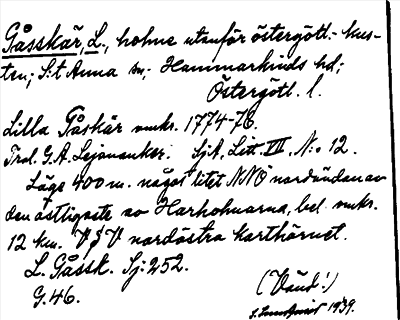 Gåsskär, L., holme utanför östergötl.-kus-
ten; S:t Anna sn; Hammarkinds hd;
Östergötl. l.
Lilla Gåskär mskr. 1774-78
Trol. G.A. Lejonankar. Sjk, Litt. VII, N:o 12.
Läge 400 m. något litet NNO nordändan av
den östligaste av Harholmarna, bel. mskr.
12 km. V t V nordöstra karthörnet.
L. Gåssk. Sj: 252.
G. 46.
(Vänd!)
1939.